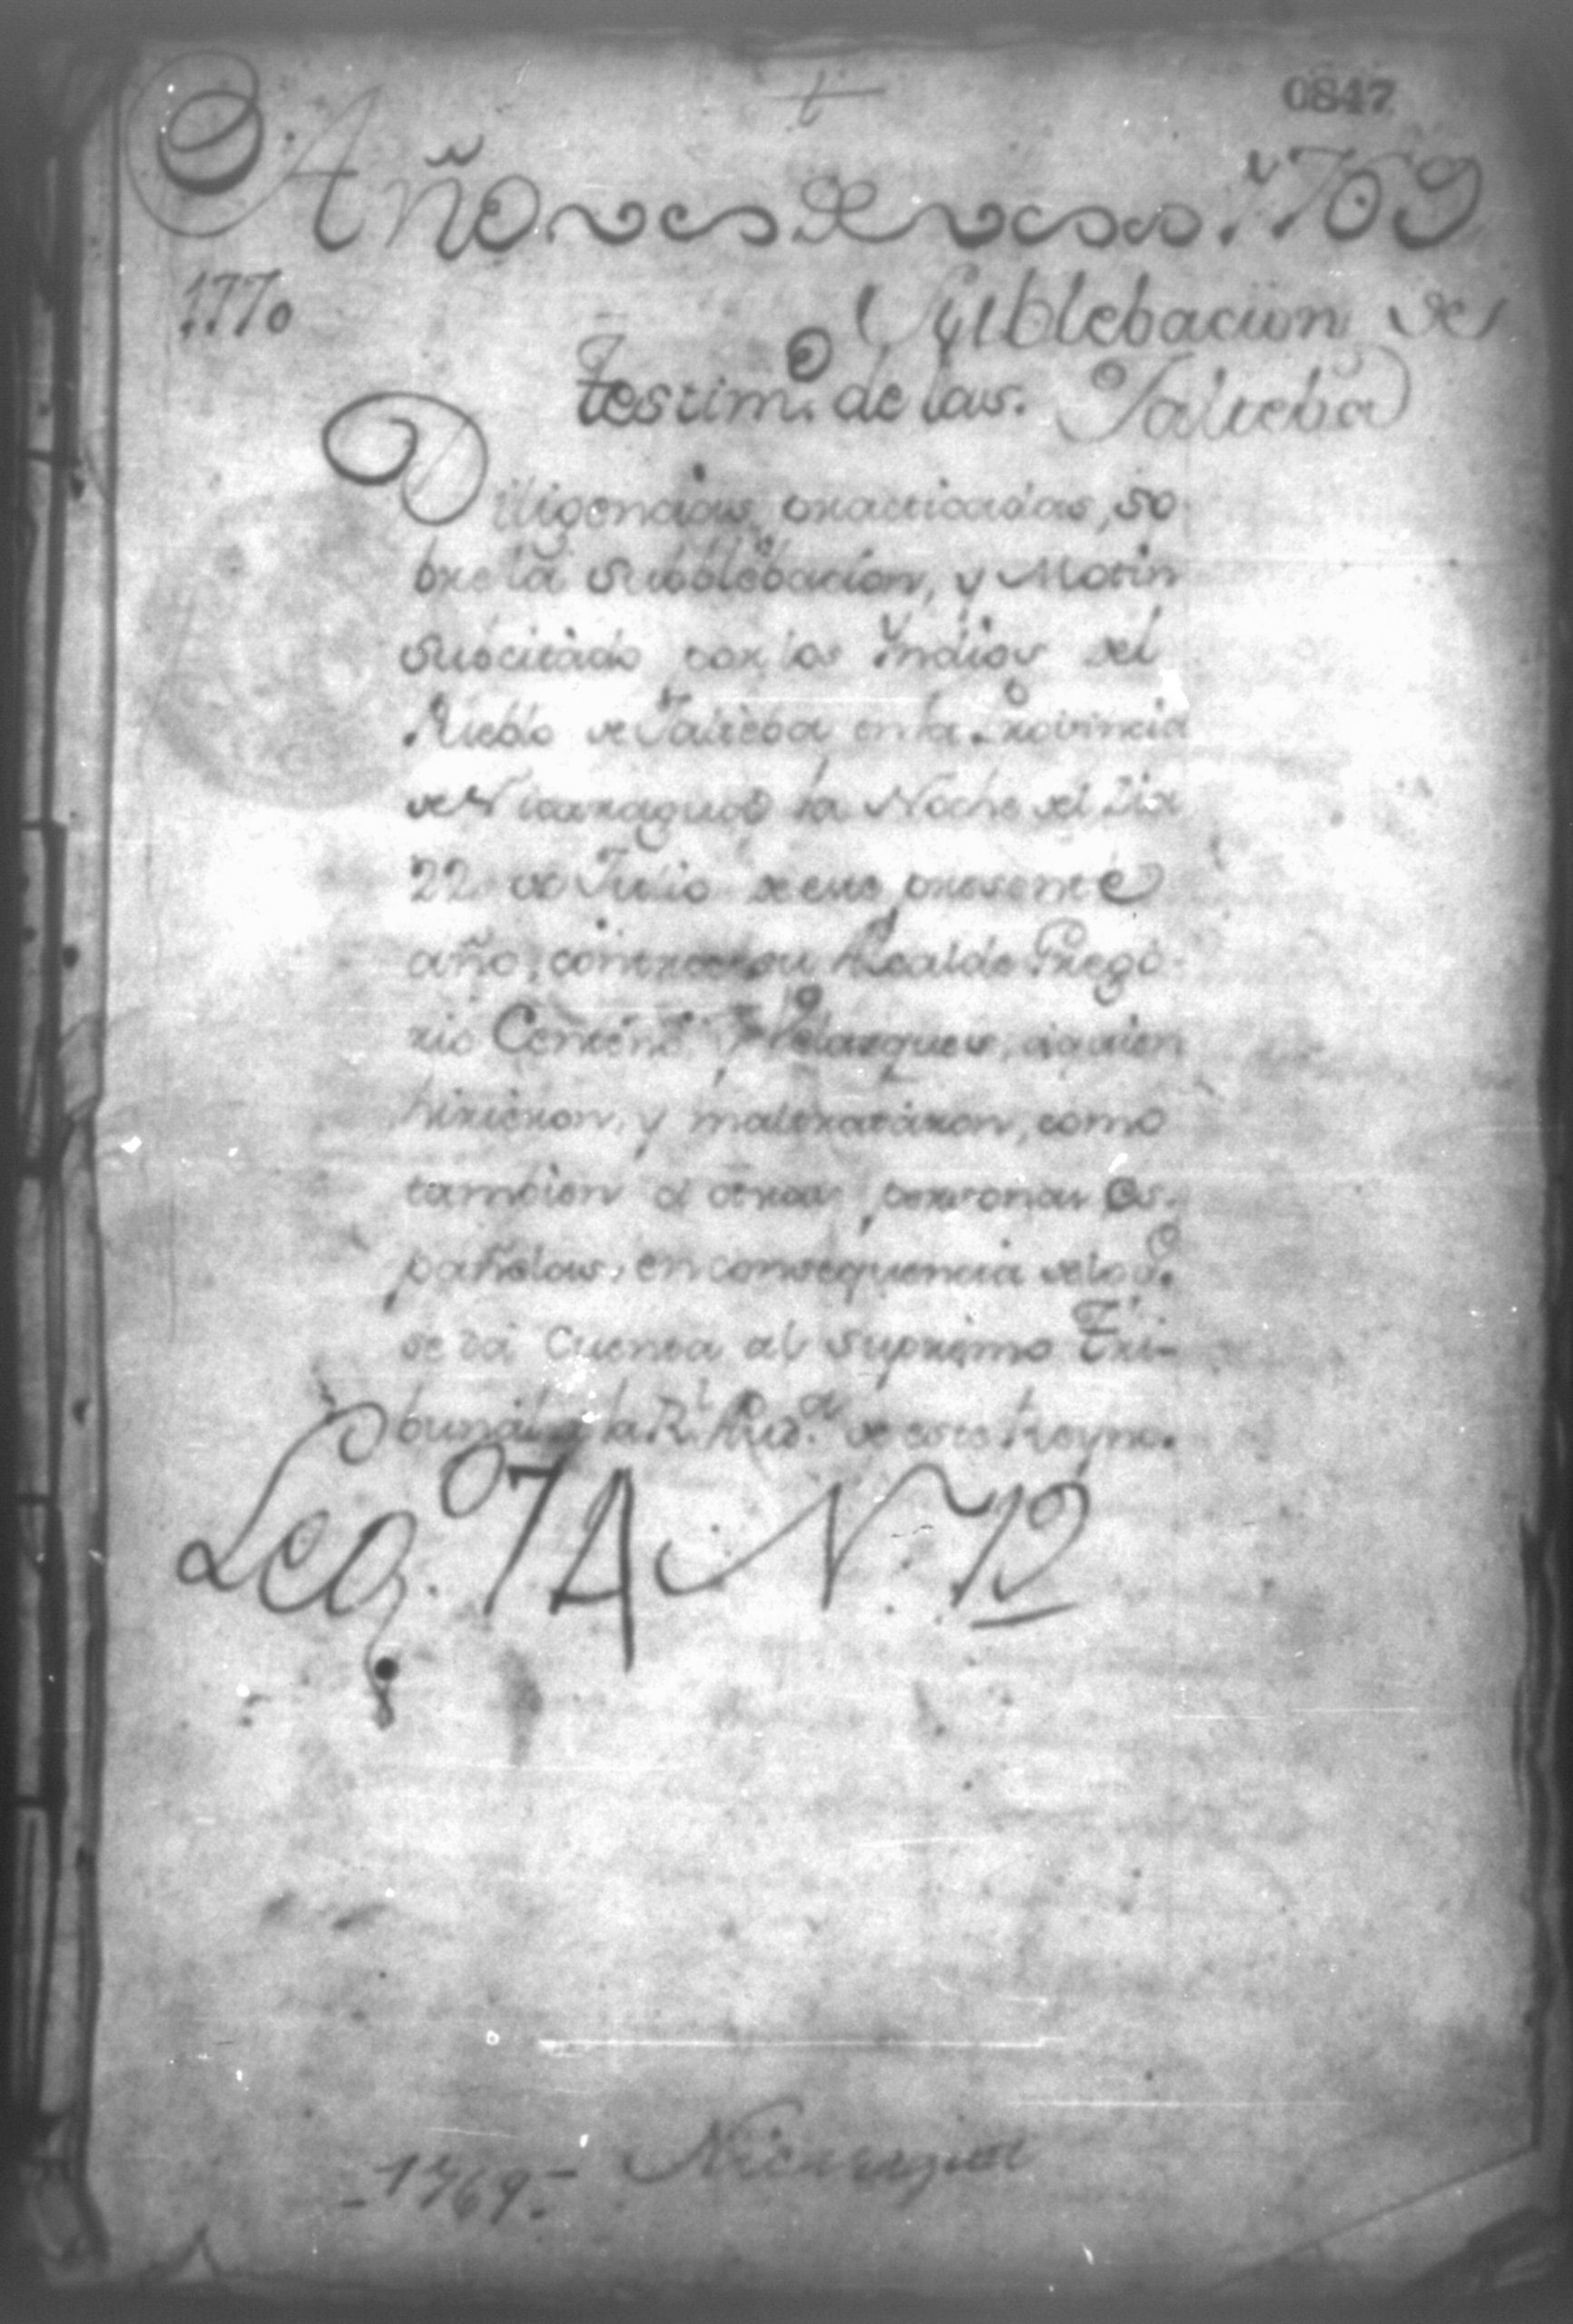 0847
Año de 1769
1770
Sublebacion de
Testimo. de las. Jalteba
Diligencias practicadas, so
bre la Sublebacion, y Motin
Subcitado por los Yndios del
Pueblo de Jalteba en la Provincia
de Nicaragua la Noche del Dia
22 de Julio de este presente
año, contra su Alcalde Grego
rio Centeno Velasques, a quien
hirieron, y maltrataron, como
tambien a otras personas Es-
pañolas, en consequencia de lo q.e
se da Cuenta al Supremo Tri-
bunal de la Rl. Auda. de este Reyno.
Lego. 74 N. 12
1769.- Nicaragua